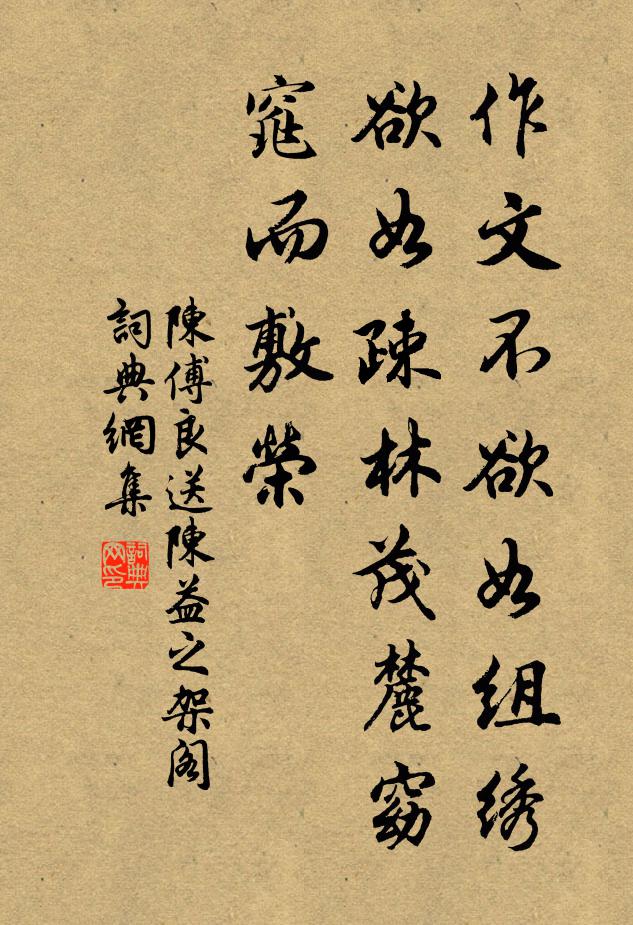 作文不欲如组绣
欲如疎林茂麓窈
窕而敷榮
陳傅良送陳益之架阁
詞典網集
詞典網印